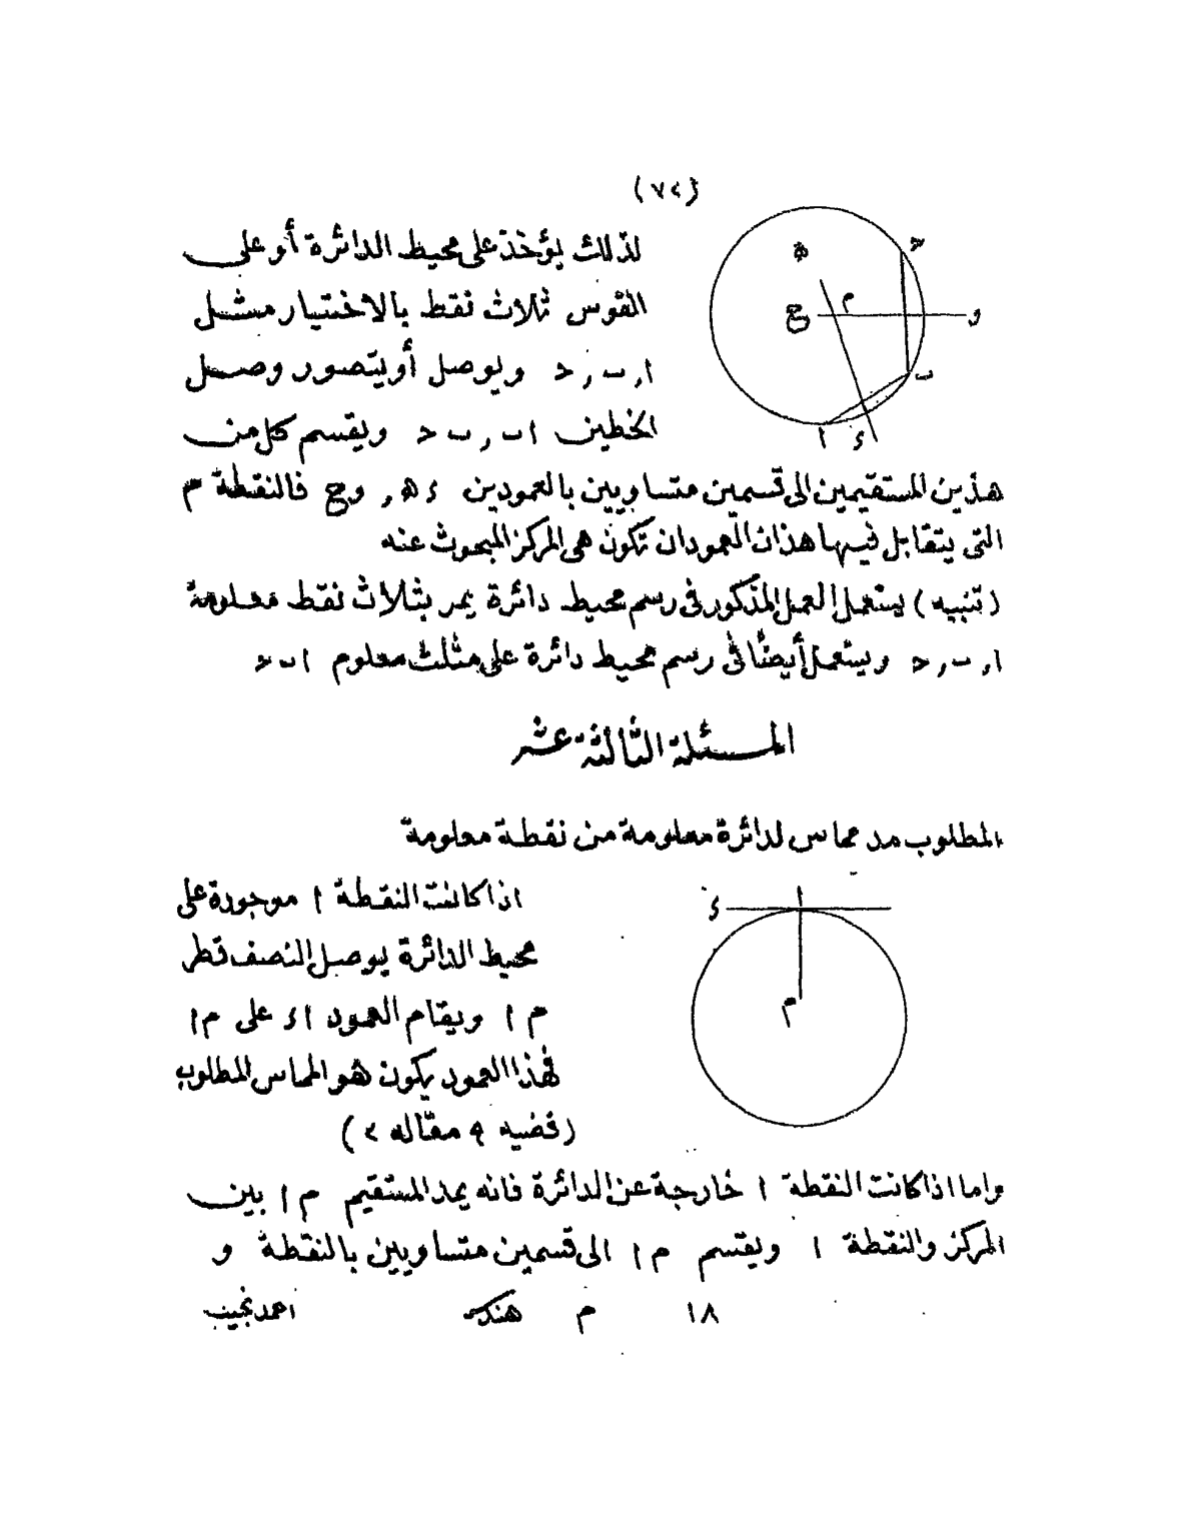 (٧٢)
لذلك يؤخذ على محيط الدائرة أو على
القوس ثلاث نقط بالاختيار مثل
ا , ب , ح ويوصل أو يتصور وصل
الخطين اب , ب ح ويقسم كل من
هذين المستقيمين الى قسمين متساويين بالعمودين ء ه , وج فالنقطة م
التى يتقابل فيها هذان العمودان تكون هى المركز المبحوث عنه
(تنبيه) يستعمل العمل المذكور فى رسم محيط دائرة يمر بثلاث نقط معلومة
ا , ب , ح ويستعمل أيضًا فى رسم محيط دائرة على مثلث معلوم اب ح
ه
ح
م
ج
و
ب
ا
ء
المسئلة الثالثة عشر
المطلوب مد مماس لدائرة معلومة من نقطة معلومة
اذا كانت النقطة ا موجودة على
محيط الدائرة يوصل النصف قطر
م ا ويقام العمود اء على م ا
فهذا العمود يكون هو المماس المطلوب
(قضيه ٩ مقاله ٢)
ا
ء
م
واما اذا كانت النقطة ا خارجة عن الدائرة فانه يمد المستقيم م ا بين
المركز والنقطة ا ويقسم م ا الى قسمين متساويين بالنقطة و
١٨ م هندسه احمد نجيب